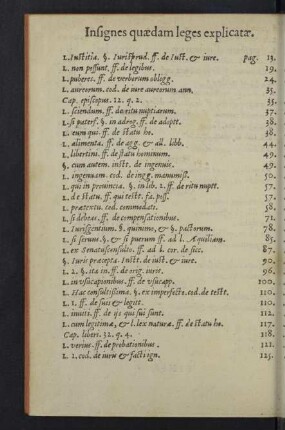 Insignes quædam leges explicatæ.
L. Iustitia. §. Iurisprud. ff. de Iust. & iure. Pag. 13.
L. non possunt. ff. de legibus. 19.
L. puberes. ff. de verborum obligg. 24.
L. aureorum. cod. de iure aureorum ann. 35.
Cap. episcopus. 22. q. 2. 35.
L. sciendum. ff. de ritu nuptiarum. 37.
L. si paterf. §. in adrog. ff. de adopt. 38.
L. eum qui. ff. de statu ho. 38.
L. alimenta. ff. de agg. & all. libb. 44.
L. libertini. ff. de statu hominum. 49.
§. cum autem. instt. de ingenuis. 49.
L. ingenuum. cod. de ingg. manumiss. 50.
L. qui in prouincia. §. in lib. 2. ff. de ritu nuptt. 57.
L. de statu. ff. qui testt. fa. poss. 57.
L. præsentu. cod. commodati. 58.
L. si debeas. ff. de compensationibus. 71.
L. Iurisgentium. §. quinimo, & §. pactorum. 78.
L. si seruus. §. & si puerum ff. ad l. Aquiliam. 85.
L. ex Senatusconsulto. ff. ad l. cor. de sicc. 87.
§. Iuris præcepta. Instt. de iust. & iure. 90.
L. 2. §. ita in. ff. de orig. iuris. 96.
L. in vsucapionibus. ff. de vsucapp. 100.
L. Hac consultissima. §. ex imperfecto. cod. de testt. 110.
L. 1. ff. de suis & legitt. 110.
L. inuiti. ff. de ijs qui sui sunt. 112.
L. cum legitimæ, & l. lex naturæ. ff. de statu ho. 117.
Cap. liberi. 32. q. 4. 118.
L. verius. ff. de probationibus. 122.
L. 2. cod. de iuru & facti ign. 125.